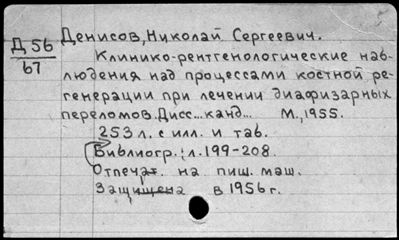 Денисов, Николай Сергеевич.
Д 56
67
Клинико-рентгенологические наб-
людения над процессами костной ре-
генерации при лечении диафизарных
переломов. Дисс... канд... М., 1955.
253 л. с илл. и таб.
Библиогр.: л. 199-208.
Отпечат. на пиш. маш.
Защищена в 1956 г.